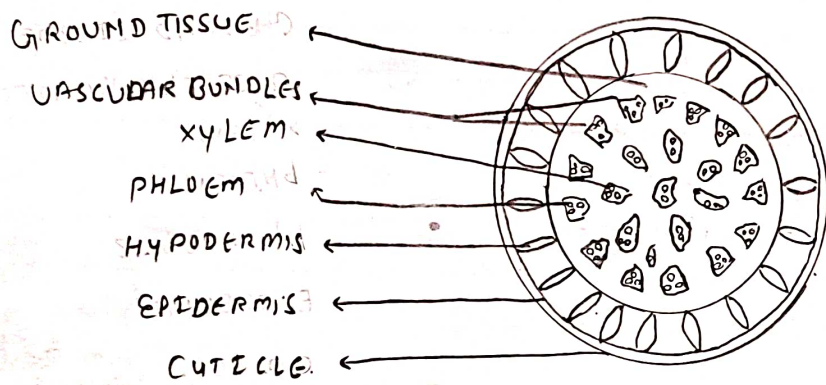 GROUND TISSUE
VASCULAR BUNDLES
XYLEM
PHLOEM
HYPODERMIS
EPIDERMIS
CUTICLE.